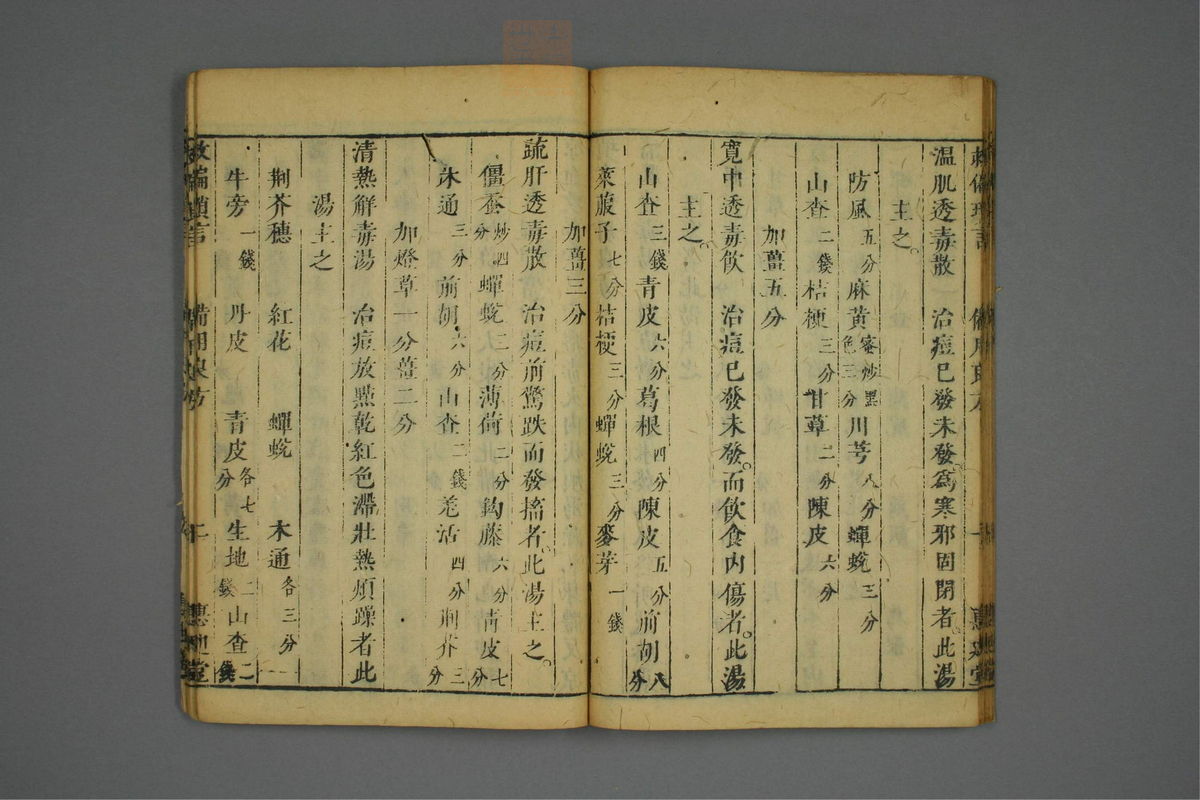 溫肌透毒散　治痘已發未發爲寒邪固閉者此湯
主之
防風五分麻黃蜜炒黑色三分川芎八分蟬蛻三分
山查二錢桔梗三分甘草二分陳皮六分
加薑五分
寬中透毒飲　治痘已發未發而飲食內傷者此湯
主之
山查三錢青皮六分葛根四分陳皮五分前胡八分
萊菔子七分桔梗三分蟬蛻三分麥芽一錢
加薑三分
疏肝透毒散　治痘前驚跌而發搐者此湯主之
僵蚕炒四分蟬蛻二分薄荷二分鈎藤六分青皮七分
木通三分前胡六分山查二錢羌活四分荆芥三分
加燈草一分薑二分
清熱解毒湯　治痘放㸃乾紅色滯壯熱煩躁者此
湯主之
荆芥穗　紅花　蟬蛻　木通各三分
牛旁一錢　丹皮　青皮各七分生地二錢山查二錢
救偏瑣言　備用良方　二　惠迪堂